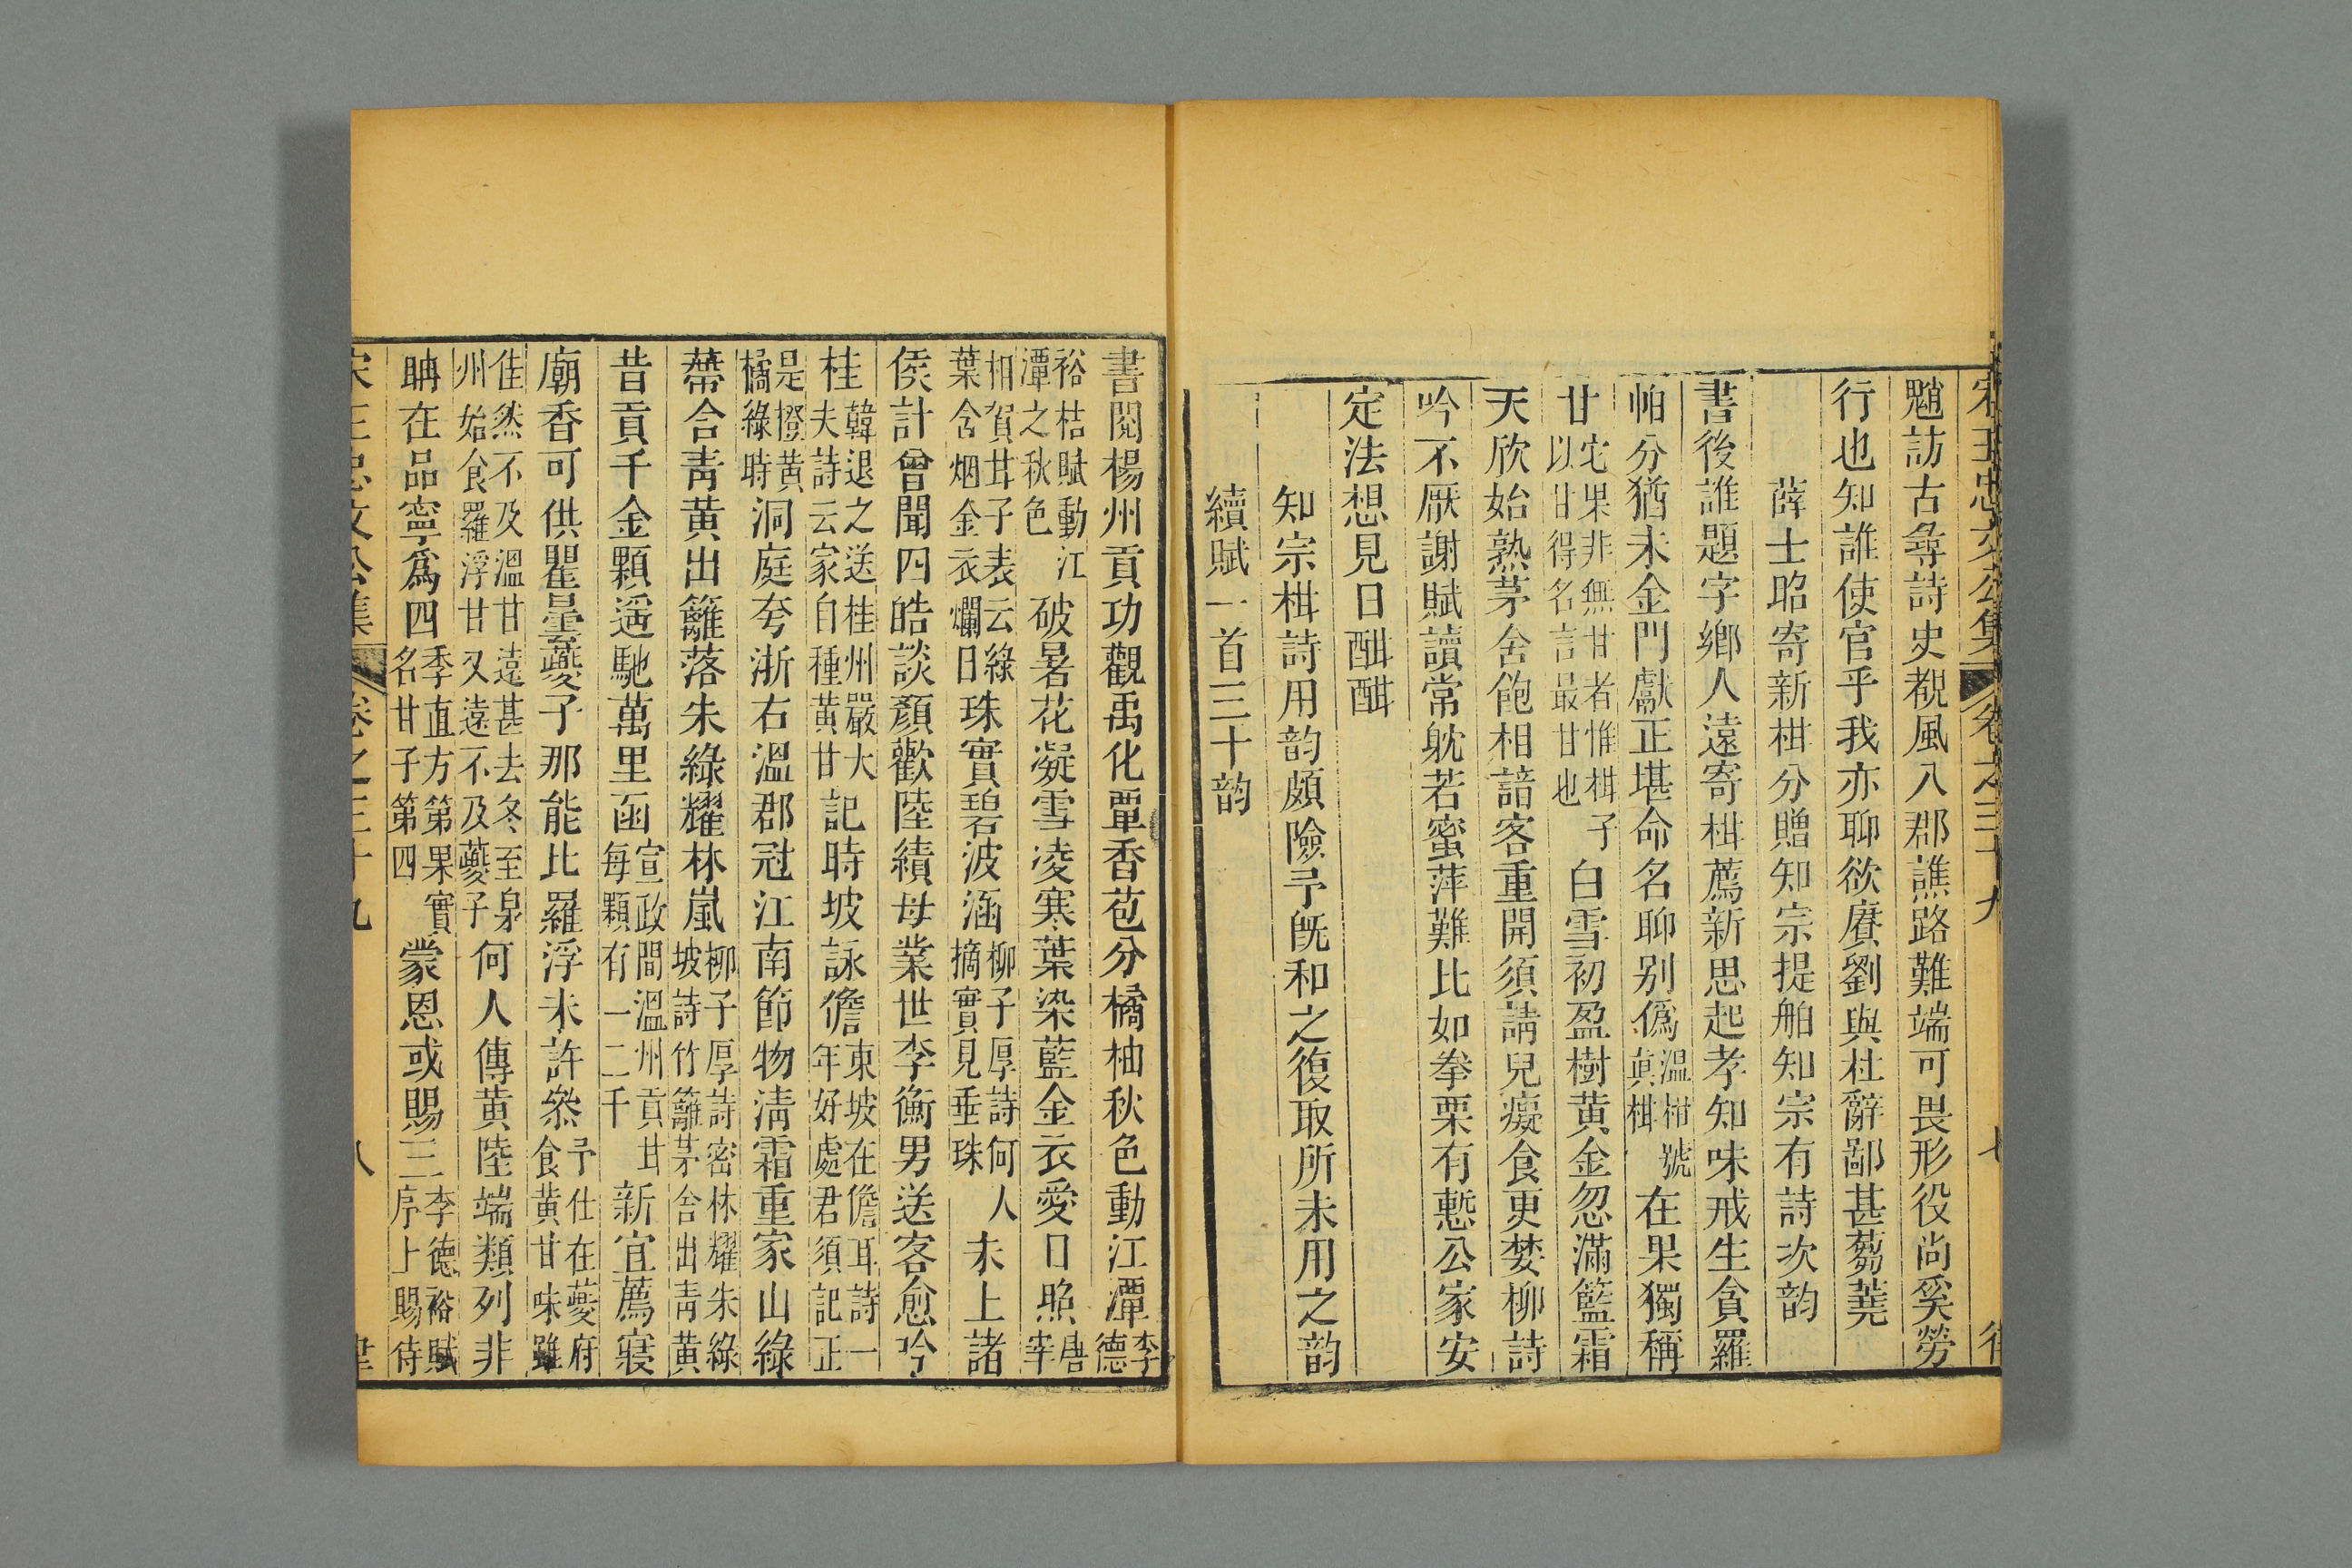 宋王忠文公集 卷之三十九 七
魈訪古尋詩史覩風八郡譙路難端可畏形役尚奚勞
行也知誰使官乎我亦聊欲賡劉與杜辭鄙甚蒭蕘
薛士昭寄新柑分贈知宗提舶知宗有詩次韵
書後誰題字鄉人遠寄柑薦新思起孝知味戒生貪羅
帕分猶未金門獻正堪命名聊别僞溫柑號真柑在果獨稱
甘宅果非無甘者惟柑子以甘得名言最甘也白雪初盈樹黄金忽滿籃霜
天欣始熟茅舍飽相諳客重開須請兒癡食更婪柳詩
吟不厭謝賦讀常躭若蜜萍難比如拳栗有慙公家安
定法想見日酣酣
知宗柑詩用韵頗險予旣和之復取所未用之韵
續賦一首三十韵
書閱楊州貢功觀禹化覃香苞分橘柚秋色動江潭李德
裕桔賦動江潭之秋色破暑花凝雪凌寒葉染藍金衣愛日照唐宰
相賀甘子表云綠葉含烟金衣爛日珠實碧波涵柳子厚詩何人摘實見垂珠未上諸
侯計曾聞四皓談顏歡陸績母業世李衡男送客愈吟
桂韓退之送桂州嚴大夫詩云家自種黃甘記時坡詠儋東坡在儋耳詩一年好處君須記正
是橙黃橘綠時洞庭夸浙右溫郡冠江南節物清霜重家山綠
蔕合青黃出籬落朱綠耀林嵐柳子厚詩密林耀朱綠坡詩竹籬茅舍出青黃
昔貢千金顆遥馳萬里函宣政間溫州貢甘每顆有一二千新宜薦寢
廟香可供瞿曇夔子那能比羅浮未許叅予仕在夔府食黄甘味雖
佳然不及溫甘遠甚去冬至泉州始食羅浮甘又遠不及夔子何人傳黃陸端類列非
聃在品寧爲四季直方第果實名甘子第四蒙恩或賜三李德裕賦序上賜侍
宋王忠文公集 卷之三十九 八